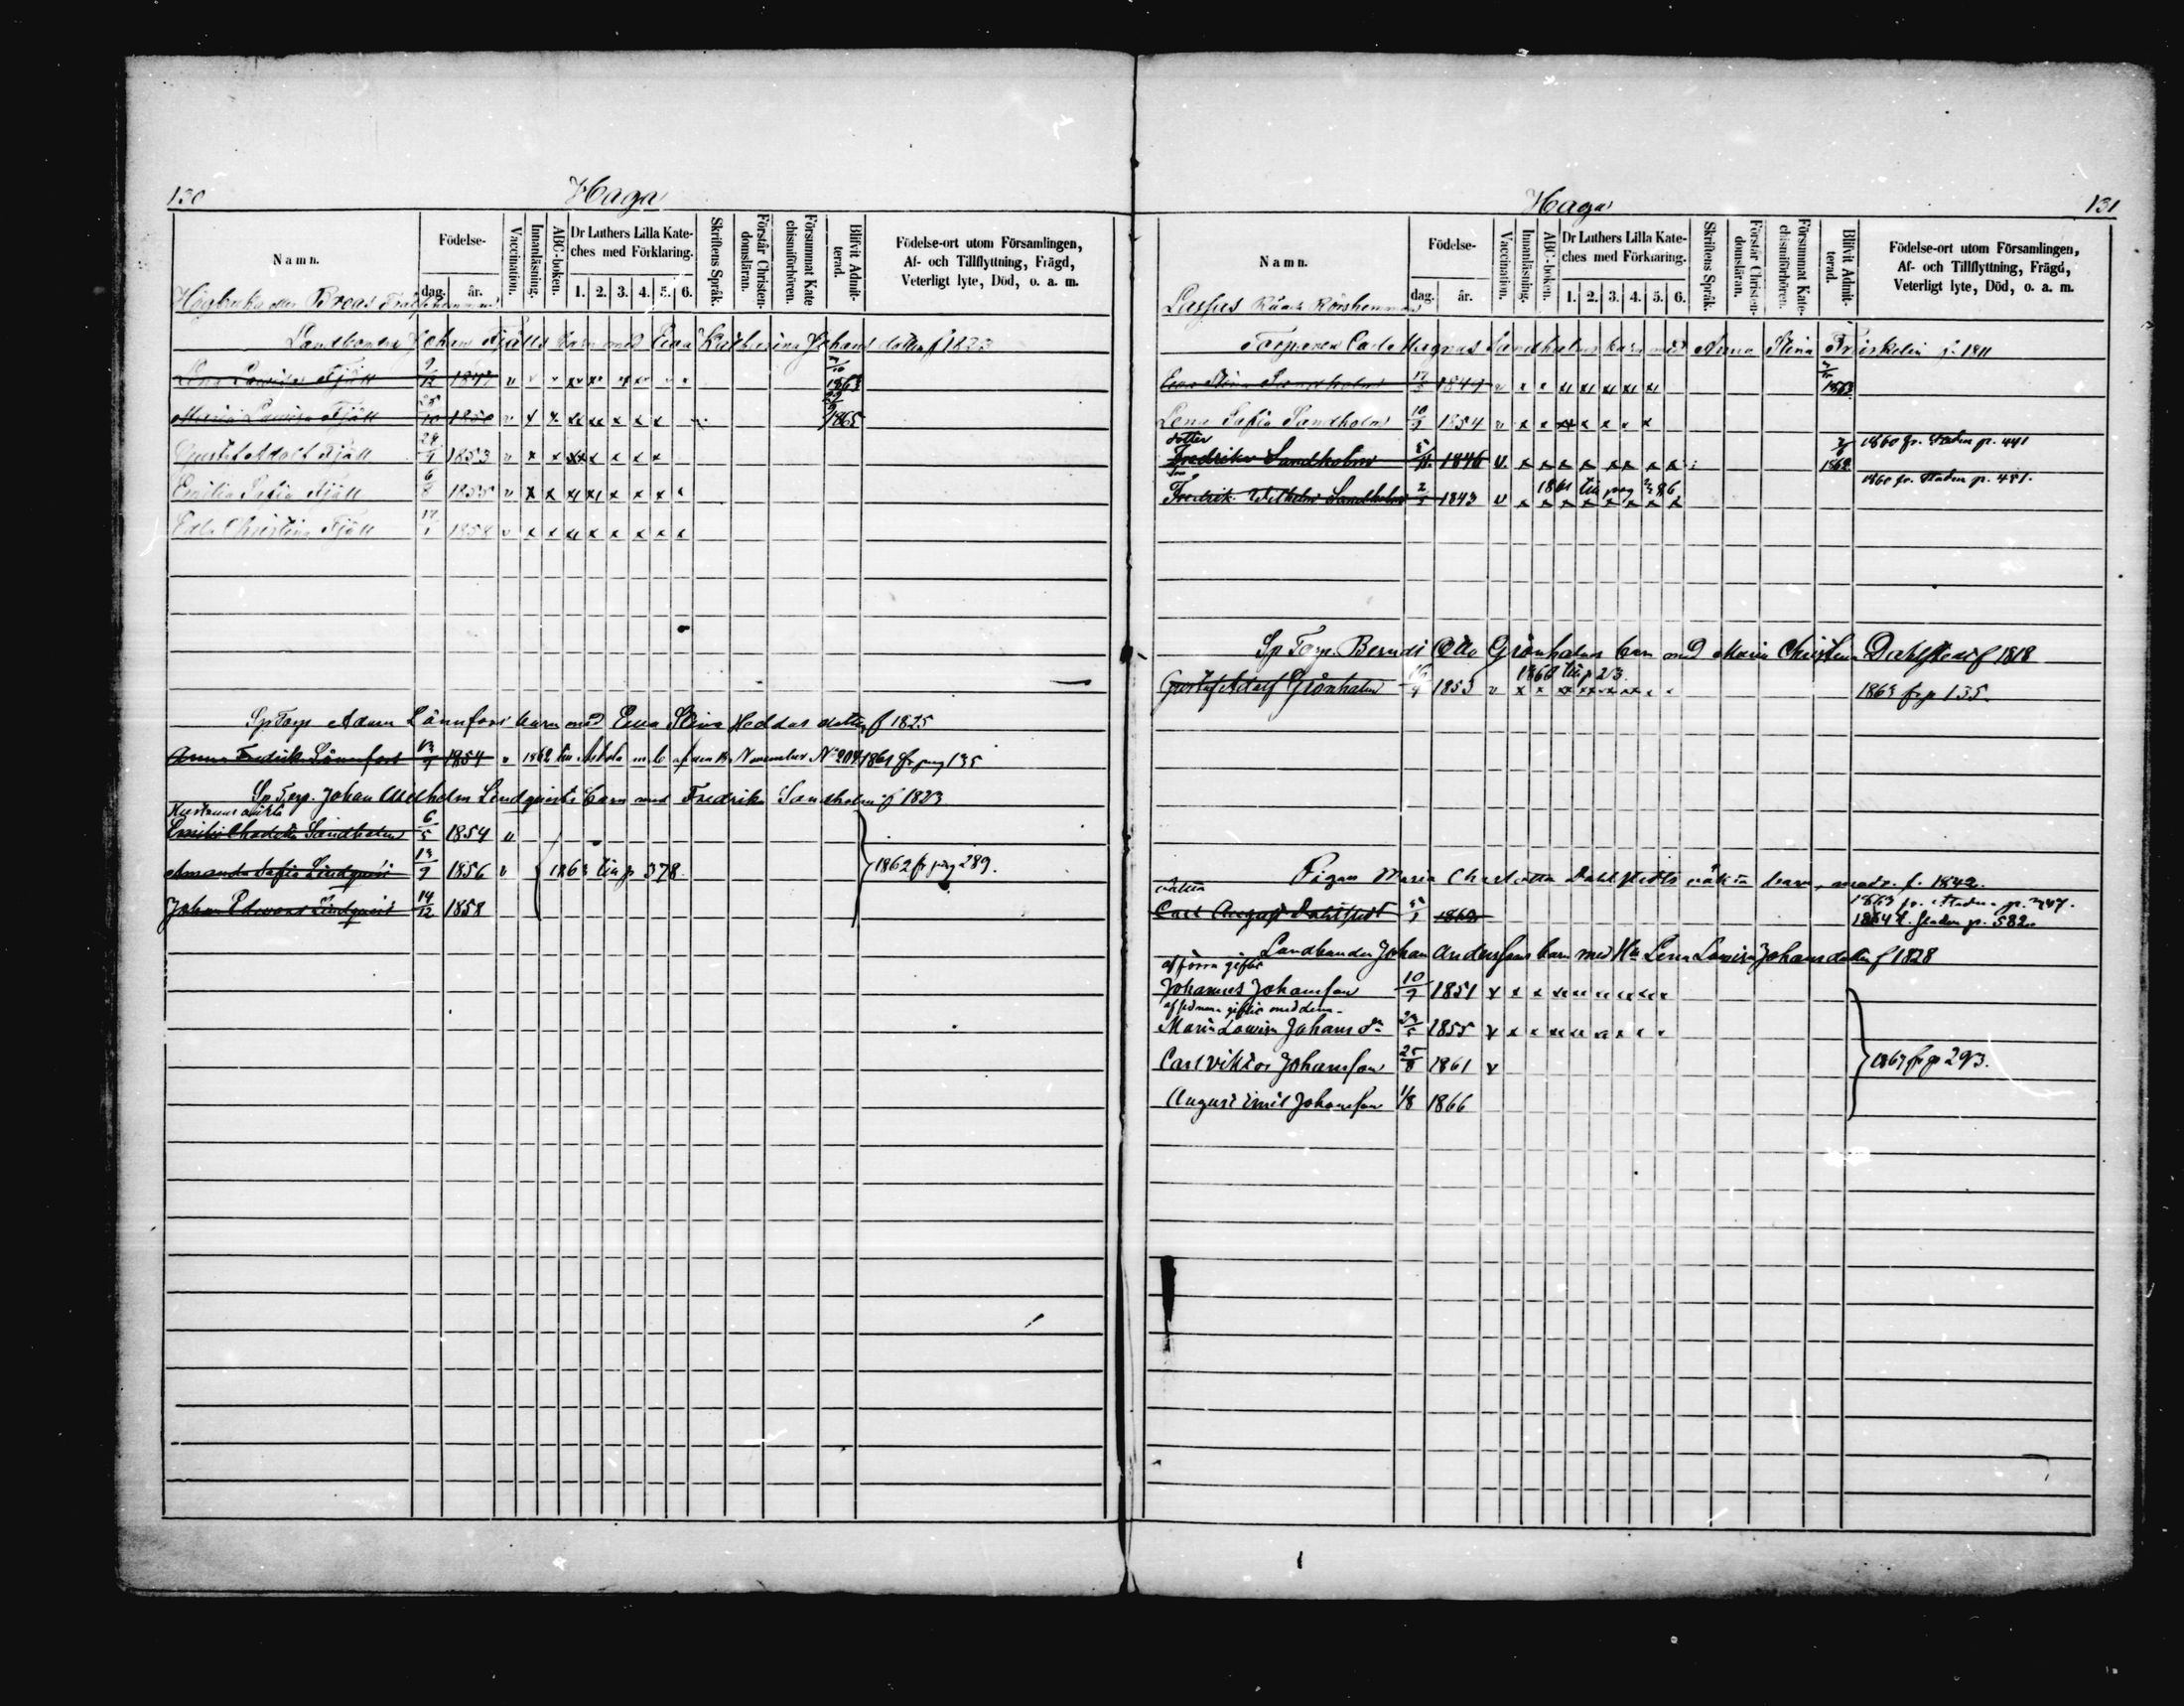 130
Haga
Namn.
Födelse-
dag. år.
Vaccination.
Innanläsning.
ABC-boken.
Dr Luthers Lilla Kate-
ches med Förklaring.
1. 2. 3. 4. 5. 6.
Skriftens Språk.
Förstår Christen-
domsläran.
Försummat Kate
chismiförhören.
Blifvit Admit-
terad.
Födelse-ort utom Församlingen,
Af- och Tillflyttning, Frägd,
Veterligt lyte, Död, o. a. m.
Breas
Landbonden Johan Fjälls barn med Eva Katharina Johans dotter f 1823
Lena Lowisa Fjäll 9/12 1847 1863
Maria Lowisa Fjäll 25/10 1850 v x x 1865
Gustaf Adolf Fjäll 24/9 1853 v x x
Emilia Sofia Fjäll 6/8 1855 v x x
Edla Christina Fjäll 17/1 1858 v x x
Sp Torp Adam Lönnfors barn med Eva Stina Heddas dotter f 1825
Anna Fredrika Lönnfors 1854 v 1862 till m b af den November No 204 1861 fr pag 135
Sp Torp. Johan Wilhelm Lindqvists barn med Fredrika Sandholm f 1823
Hustruns oäkta
Emilia Charlotta Sandholm 6/5 1854 v
Amanda Sofia Lindqvist 13/9 1856 v 1863 till p 378 1862 fr pag 289.
Johan Edvard Lindqvist 14/12 1858
Haga
131
Namn.
Födelse-
dag. år.
Vaccination.
Innanläsning.
ABC-boken.
Dr Luthers Lilla Kate-
ches med Förklaring.
1. 2. 3. 4. 5. 6.
Skriftens Språk.
Förstår Christen-
domsläran.
Försummat Kate-
chismiförhören.
Blifvit Admit-
terad.
Födelse-ort utom Församlingen,
Af- och Tillflyttning, Frägd,
Veterligt lyte, Död, o. a. m.
Lassas
Torparen Carl Magnus Sandholms barn med Anna Stina f. 1811
Eva Stina Sandholm 1847 1863
Lena Sofia Sandholm 10/9 1854 v x x
dotter
Fredrika Sandholm 5/11 1846 v. x x 1862 1860 fr. Staden p. 441
Son
Fredrik Wilhelm Sandholm 2/5 1843 v x 1861 till pag 286 1860 fr. Staden p. 451.
Sp Torp. Berndt Otto Grönholms barn med Maria Christina Dahlstedt f 1818
Gustaf Adolf Grönholm 16/9 1853 v x x 1866 till p 23. 1863 fr p 135.
Pigan Maria Charlotta Dahlstedts oäkta barn, modr. f. 1842.
oäkta
Carl August Dahlstedt 1863 1863 fr. Staden p. 347.
1864 t. Staden p. 582.
Landbonden Johan Anderssons barn med Hu Lena Lowisa Johansdotter f 1828
af förra giftet
Johannes Johansson 10/9 1851 v x x
af sednare giftet med denna
Maria Lowisa Johans dr 23/5 1855 v x x
Carl Viktor Johansson 25/8 1861 v 1867 fr p 293.
August Emil Johansson 1/8 1866